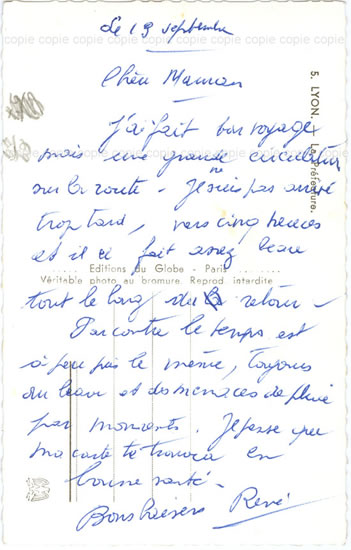 Le 19 septembre
Chère Maman
J'ai fait bon voyage
mais une grande circulation
sur la route - Je ne suis pas arrivé
trop tard, vers cinq heures
et il a fait assez beau
tout le long du retour -
Par contre le temps est
à peu près le même, toujours
du beau et des menaces de pluie
par moments. Je pense que
ma carte te trouvera en
bonne santé -
Bons baisers René
5. LYON. - La Préfecture.
Editions du Globe - Paris
Véritable photo au bromure. Reprod. interdite
copie copie copie copie copie copie copie copie